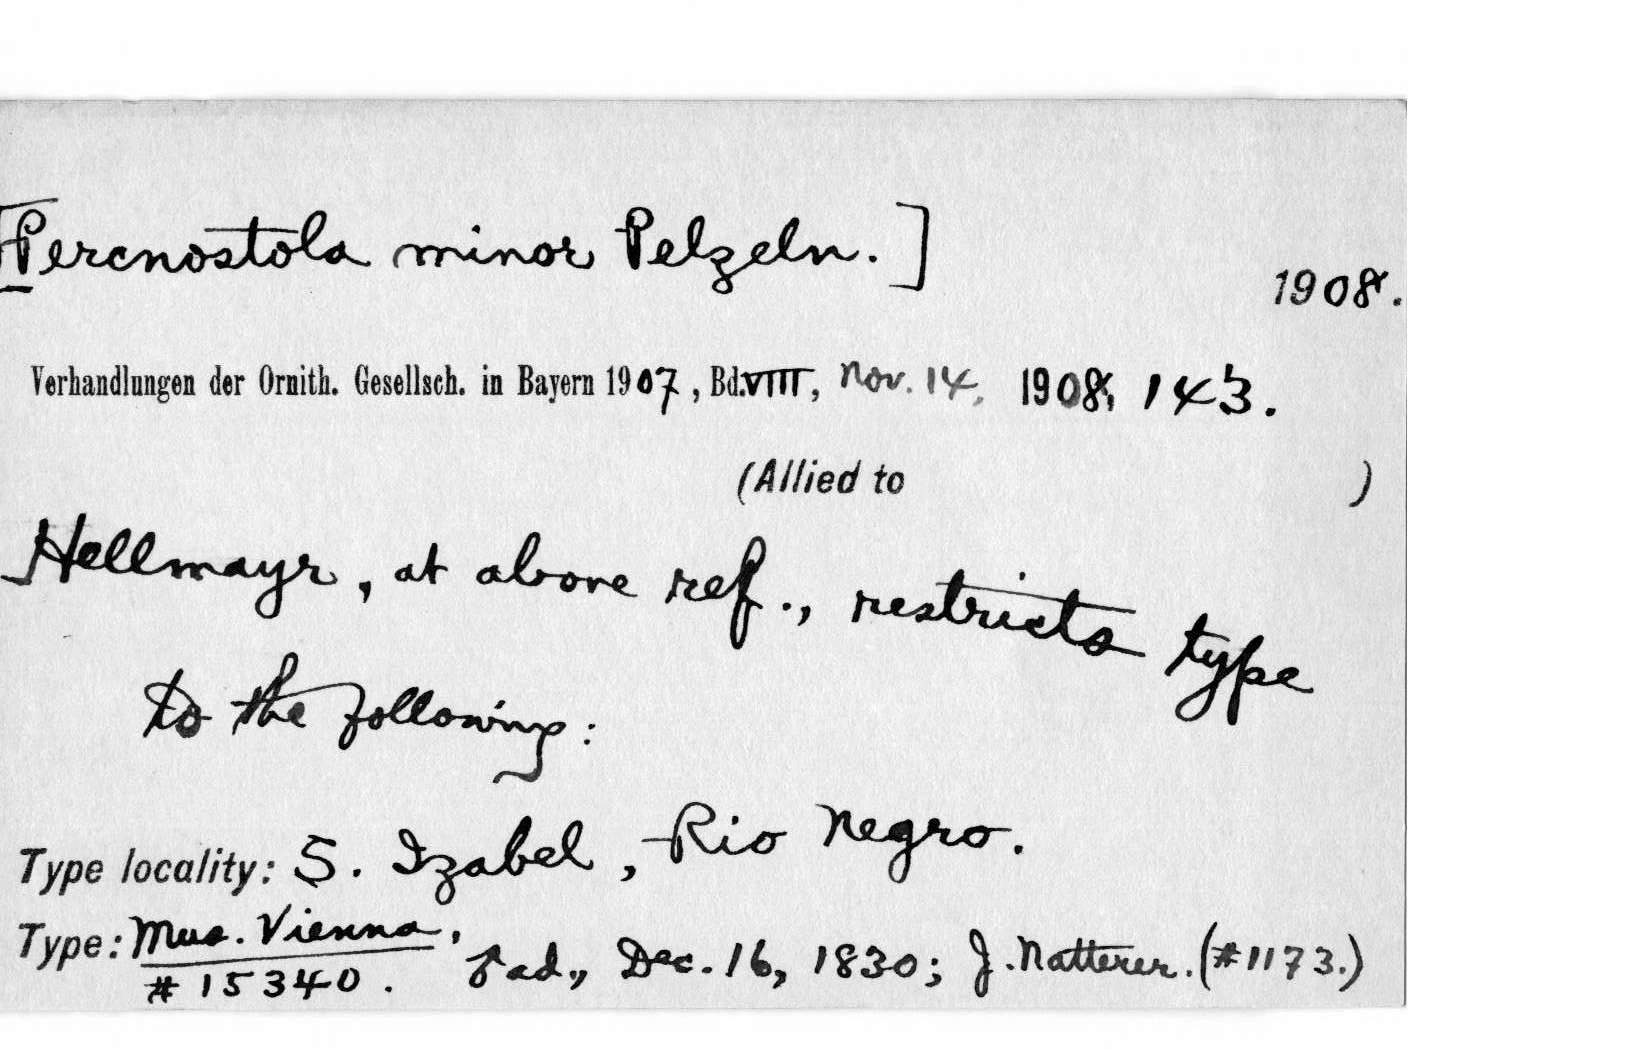 [Percnostola minor Pelzeln.]
1908.
Verhandlungen der Ornith. Gesellsch. in Bayern 1907, Bd. VIII, Nov. 14, 1908, 143.
(Allied to )
Hellmayr, at above ref., restricts type
to the following:
Type locality: S. Izabel, Rio Negro.
Type: Mus. Vienna,
#15340. ♂ad., Dec. 16, 1830; J. Natterer. (#1173.)